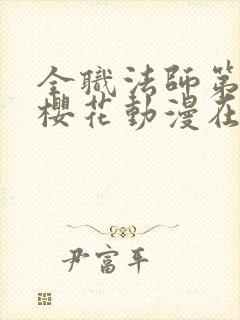 全職法師第
櫻花動漫在
尹富平